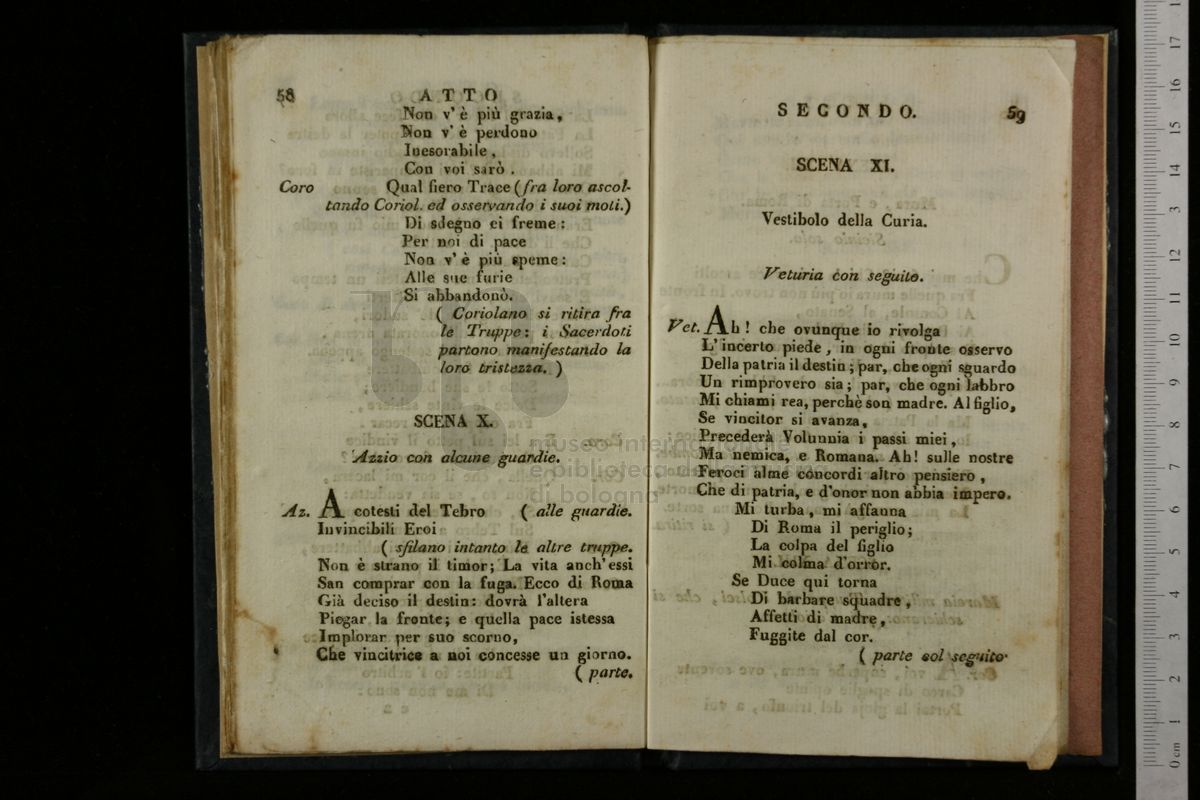 58
ATTO
Non v' è più grazia,
Non v' è perdono
Inesorabile,
Con voi sarò.
Coro Qual fiero Trace (fra loro ascol-
tando Coriol. ed osservando i suoi moti.)
Di sdegno ei freme:
Per noi di pace
Non v' è più speme:
Alle sue furie
Si abbandonò.
( Coriolano si ritira fra
le Truppe: i Sacerdoti
partono manifestando la
loro tristezza. )
SCENA X.
Azzio con alcune guardie.
Az. A cotesti del Tebro ( alle guardie.
Invincibili Eroi
( sfilano intanto le altre truppe.
Non è strano il timor; La vita anch' essi
San comprar con la fuga. Ecco di Roma
Già deciso il destin: dovrà l'altera
Piegar la fronte; e quella pace istessa
Implorar per suo scorno,
Che vincitrice a noi concesse un giorno.
( parte.
SECONDO.
59
SCENA XI.
Vestibolo della Curia.
Veturia con seguito.
Vet. Ah! che ovunque io rivolga
L'incerto piede, in ogni fronte osservo
Della patria il destin; par, che ogni sguardo
Un rimprovero sia; par, che ogni labbro
Mi chiami rea, perchè son madre. Al figlio,
Se vincitor si avanza,
Precederà Volunnia i passi miei,
Ma nemica, e Romana. Ah! sulle nostre
Feroci alme concordi altro pensiero,
Che di patria, e d'onor non abbia impero.
Mi turba, mi affanna
Di Roma il periglio;
La colpa del figlio
Mi colma d'orror.
Se Duce qui torna
Di barbare squadre,
Affetti di madre,
Fuggite dal cor.
( parte col seguito
museo internazionale
e biblioteca della musica
di bologna